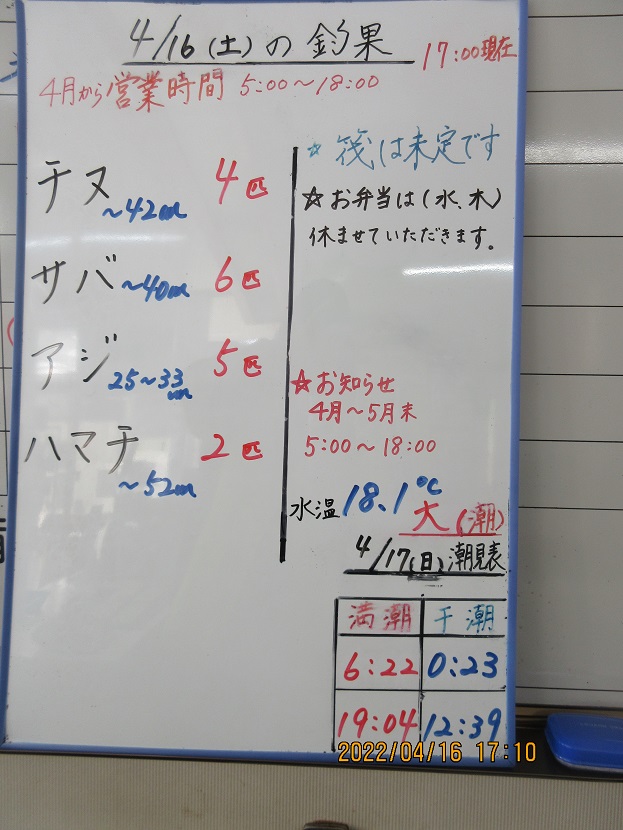 4/16(土)の釣果
17:00現在
4月から営業時間 5:00～18:00
チヌ ～42cm 4匹
サバ ～40cm 6匹
アジ 25～33cm 5匹
ハマチ ～52cm 2匹
☆ 筏は未定です
☆お弁当は(水、木)
休ませていただきます。
☆お知らせ
4月～5月末
5:00～18:00
水温 18.1℃
大(潮)
4/17(日)潮見表
満潮 干潮
6:22 0:23
19:04 12:39
2022/04/16 17:10